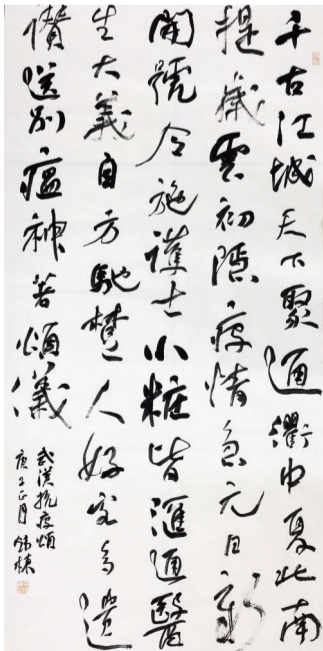 千古江城天下聚通衢中夏此南
提歲雲初隱疫情急元日新
聞號令施護士小粧皆滙通醫
生大義自方馳楚人好客多遺
送別瘟神著頌儀
武漢抗疫頌
庚子正月